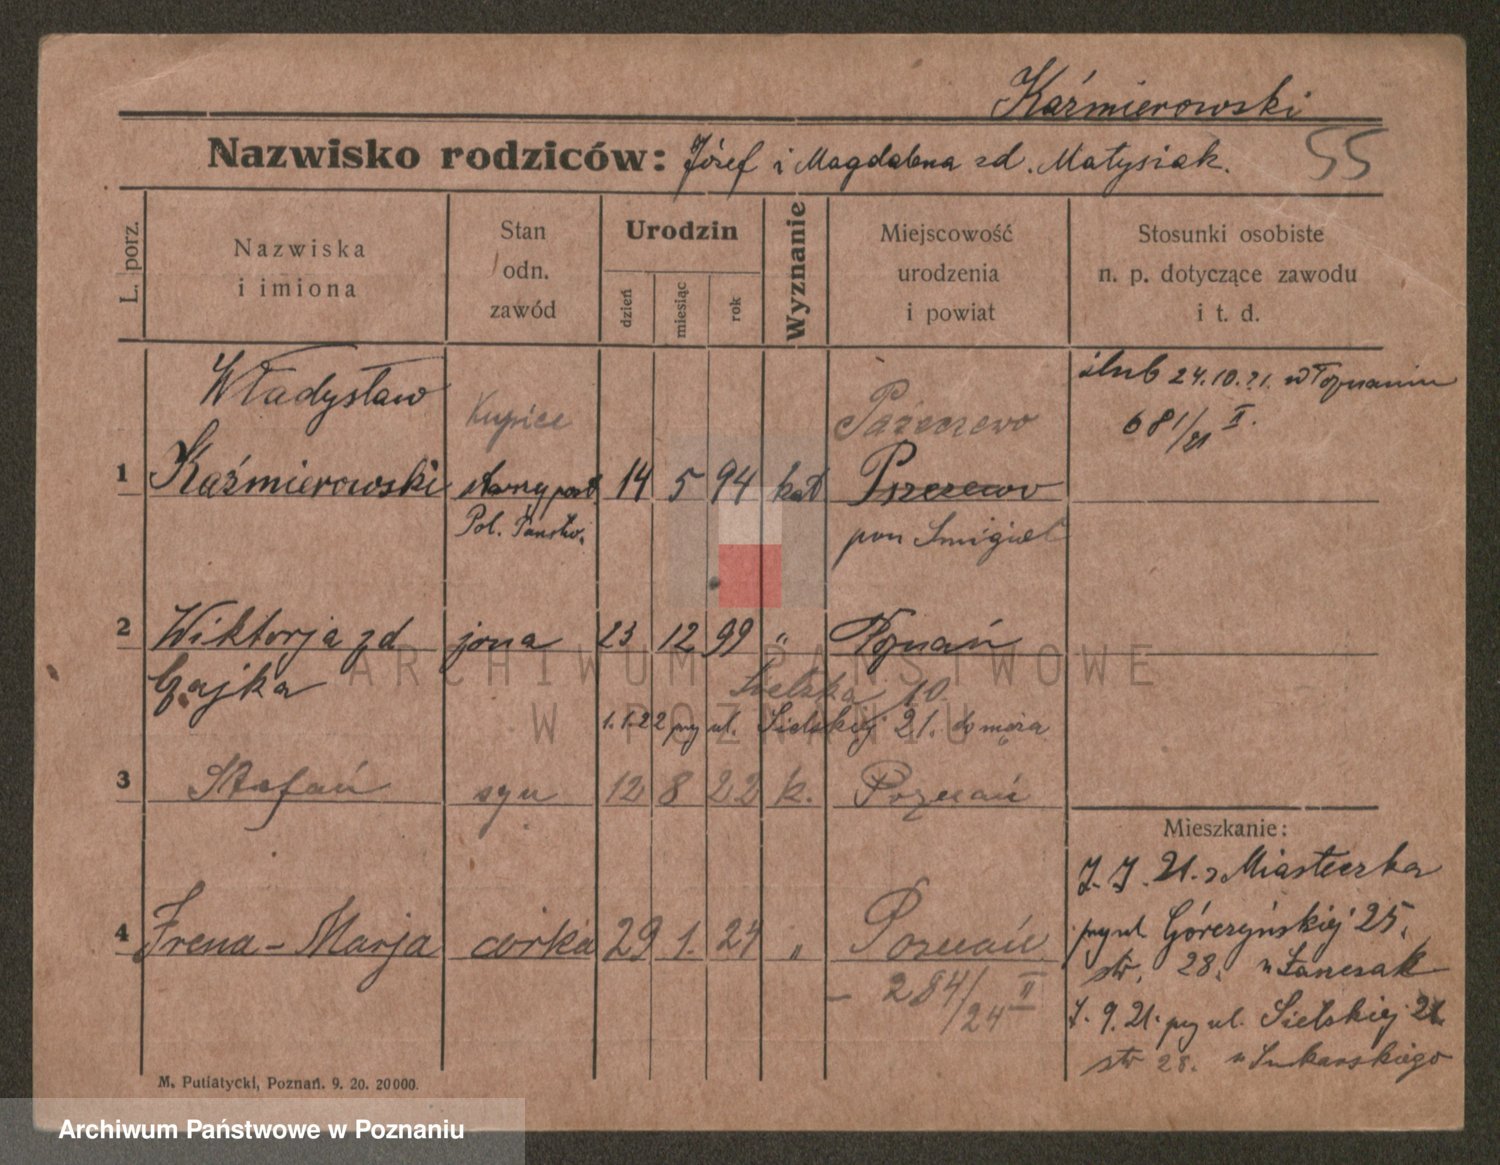 Kaźmierowski
Nazwisko rodziców: Józef i Magdalena zd. Matysiak.
55
L. porz.
Nazwiska
i imiona
Stan
odn.
zawód
Urodzin
dzień
miesiąc
rok
Wyznanie
Miejscowość
urodzenia
i powiat
Stosunki osobiste
n. p. dotyczące zawodu
i t. d.
Władysław
Kupiec
ślub 24.10.21. w Poznaniu
681/21 II.
1 Kaźmierowski
post.
14 5 94 kat
Pol. Państw.
pow Śmigiel
2 Wiktorja zd żona 23 12 99 " Poznań
Gajka
Sielska 10
1.1.22 przy ul. Sielskiej 21. do męża
3 Stefań syn 12 8 22 k. Poznań
Mieszkanie:
21. z Miasteczka
przy ul. Górczyńskiej 25.
4 Irena-Marja córka 29 1. 24 " Poznań
str. 28.
- 284/24 II
9.21. przy ul. Sielskiej 21.
str 28.
M. Putiatycki, Poznań. 9. 20. 20000.
ARCHIWUM PAŃSTWOWE
W POZNANIU
Archiwum Państwowe w Poznaniu